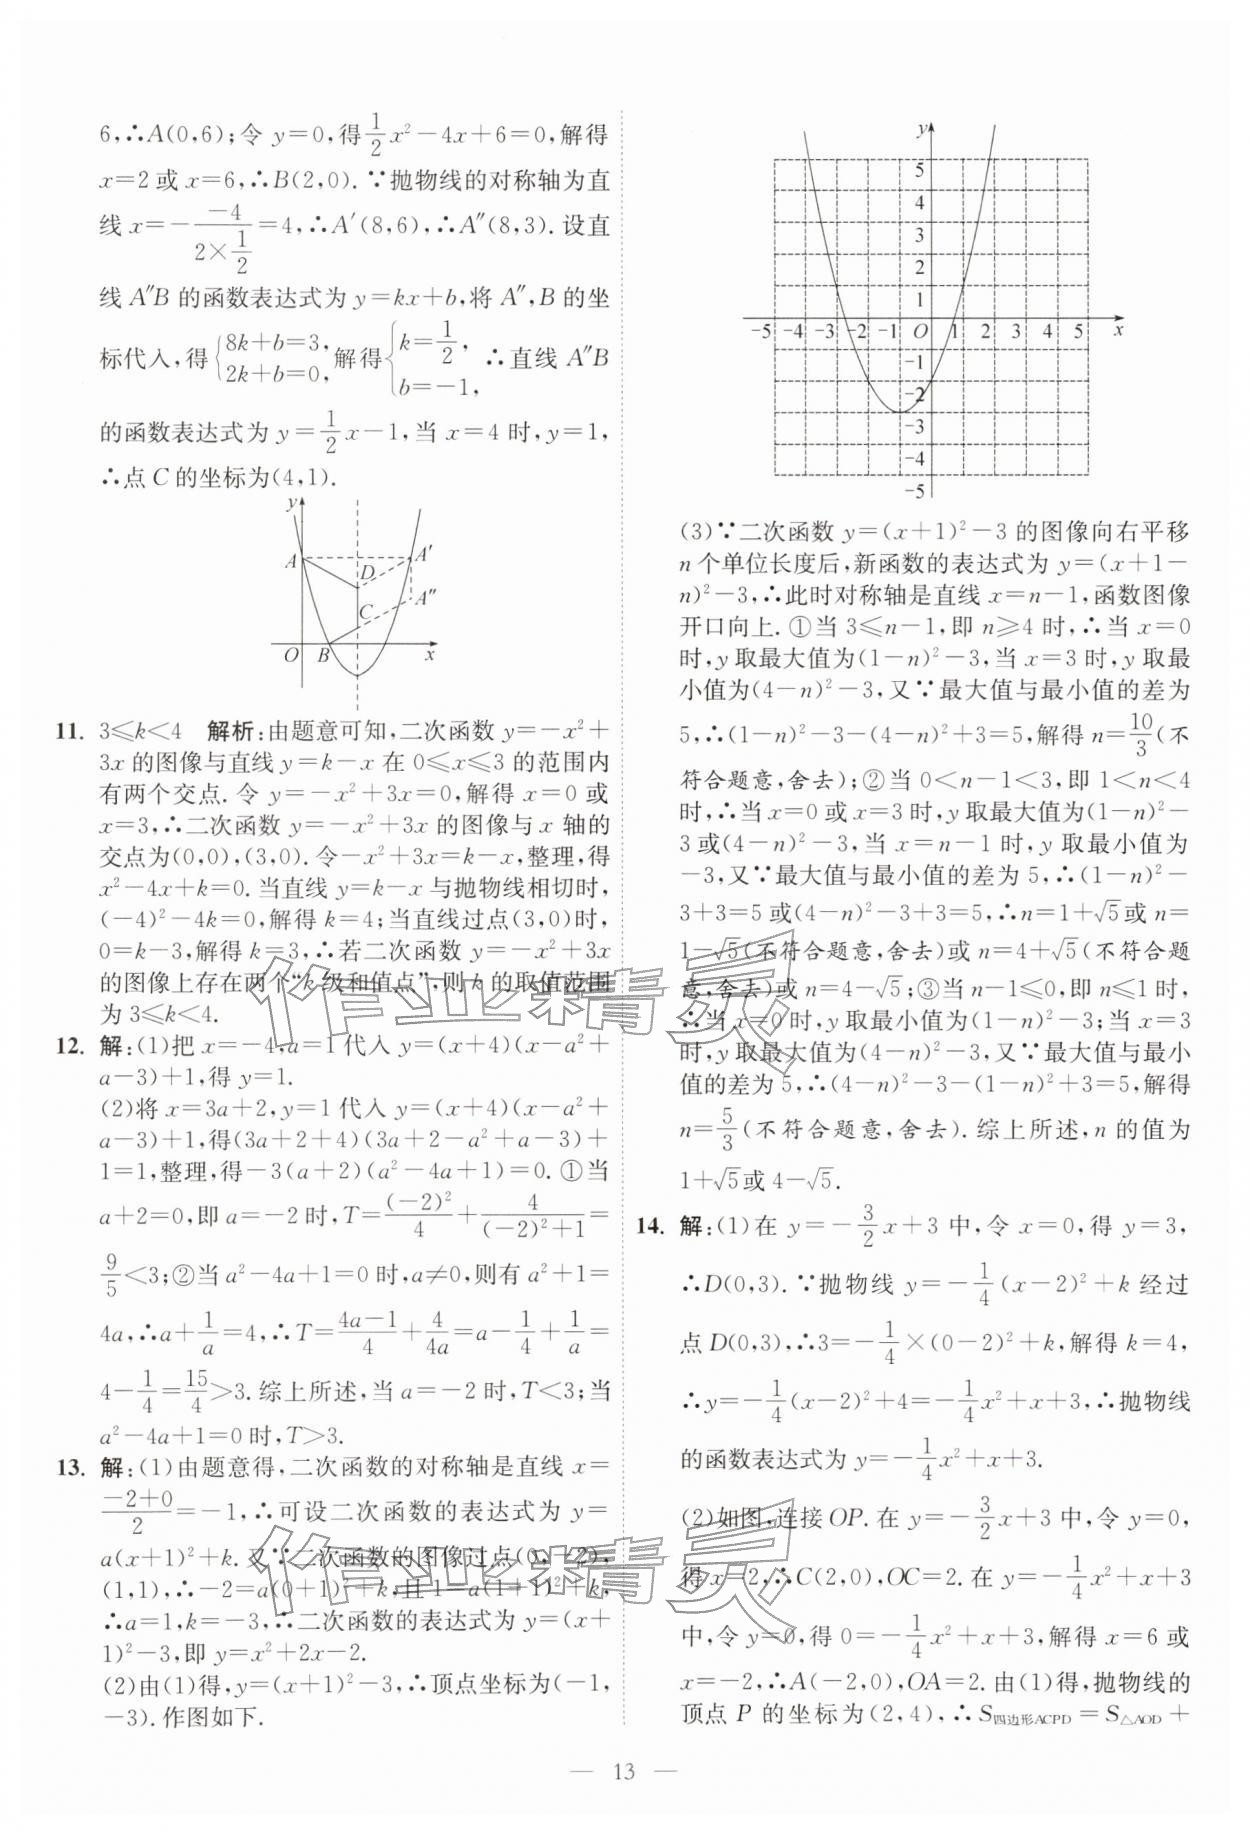 6,∴A(0,6);令 y=0,得 1/2 x²-4x+6=0,解得
x=2 或 x=6,∴B(2,0). ∵抛物线的对称轴为直
线 x=- -4/(2×1/2) =4,∴A′(8,6),∴A″(8,3). 设直
线 A″B 的函数表达式为 y=kx+b,将 A″,B 的坐
标代入,得 {8k+b=3, 2k+b=0, 解得 {k=1/2, b=-1, ∴直线 A″B
的函数表达式为 y=1/2 x-1,当 x=4 时,y=1,
∴点 C 的坐标为(4,1).
y
A
A′
D
C
A″
O B x
11. 3≤k<4 解析:由题意可知,二次函数 y=-x²+
3x 的图像与直线 y=k-x 在 0≤x≤3 的范围内
有两个交点. 令 y=-x²+3x=0,解得 x=0 或
x=3,∴二次函数 y=-x²+3x 的图像与 x 轴的
交点为(0,0),(3,0). 令-x²+3x=k-x,整理,得
x²-4x+k=0. 当直线 y=k-x 与抛物线相切时,
(-4)²-4k=0,解得 k=4;当直线过点(3,0)时,
0=k-3,解得 k=3,∴若二次函数 y=-x²+3x
的图像上存在两个“k级和值点”,则 k 的取值范围
为 3≤k<4.
12. 解:(1)把 x=-4,a=1 代入 y=(x+4)(x-a²+
a-3)+1,得 y=1.
(2)将 x=3a+2,y=1 代入 y=(x+4)(x-a²+
a-3)+1,得(3a+2+4)(3a+2-a²+a-3)+
1=1,整理,得-3(a+2)(a²-4a+1)=0. ①当
a+2=0,即 a=-2 时,T=(-2)²/4+4/((-2)²+1)=
9/5<3;②当 a²-4a+1=0 时,a≠0,则有 a²+1=
4a,∴a+1/a=4,∴T=(4a-1)/4+4/4a=a-1/4+1/a=
4-1/4=15/4>3. 综上所述,当 a=-2 时,T<3;当
a²-4a+1=0 时,T>3.
13. 解:(1)由题意得,二次函数的对称轴是直线 x=
(-2+0)/2=-1,∴可设二次函数的表达式为 y=
a(x+1)²+k. 又∵二次函数的图像过点(0,-2),
(1,1),∴-2=a(0+1)²+k,且 1=a(1+1)²+k,
∴a=1,k=-3,∴二次函数的表达式为 y=(x+
1)²-3,即 y=x²+2x-2.
(2)由(1)得,y=(x+1)²-3,∴顶点坐标为(-1,
-3). 作图如下.
y
5
4
3
2
1
-5 -4 -3 -2 -1 O 1 2 3 4 5 x
-1
-2
-3
-4
-5
(3)∵二次函数 y=(x+1)²-3 的图像向右平移
n 个单位长度后,新函数的表达式为 y=(x+1-
n)²-3,∴此时对称轴是直线 x=n-1,函数图像
开口向上. ①当 3≤n-1,即 n≥4 时,∴当 x=0
时,y 取最大值为(1-n)²-3,当 x=3 时,y 取最
小值为(4-n)²-3,又∵最大值与最小值的差为
5,∴(1-n)²-3-(4-n)²+3=5,解得 n=10/3(不
符合题意,舍去);②当 0<n-1<3,即 1<n<4
时,∴当 x=0 或 x=3 时,y 取最大值为(1-n)²-
3 或(4-n)²-3,当 x=n-1 时,y 取最小值为
-3,又∵最大值与最小值的差为 5,∴(1-n)²-
3+3=5 或(4-n)²-3+3=5,∴n=1+√5或 n=
1-√5(不符合题意,舍去)或 n=4+√5(不符合题
意,舍去)或 n=4-√5;③当 n-1≤0,即 n≤1 时,
∴当 x=0 时,y 取最小值为(1-n)²-3;当 x=3
时,y 取最大值为(4-n)²-3,又∵最大值与最小
值的差为 5,∴(4-n)²-3-(1-n)²+3=5,解得
n=5/3(不符合题意,舍去). 综上所述,n 的值为
1+√5或 4-√5.
14. 解:(1)在 y=-3/2 x+3 中,令 x=0,得 y=3,
∴D(0,3). ∵抛物线 y=-1/4(x-2)²+k 经过
点 D(0,3),∴3=-1/4×(0-2)²+k,解得 k=4,
∴y=-1/4(x-2)²+4=-1/4 x²+x+3,∴抛物线
的函数表达式为 y=-1/4 x²+x+3.
(2)如图,连接 OP. 在 y=-3/2 x+3 中,令 y=0,
得 x=2,∴C(2,0),OC=2. 在 y=-1/4 x²+x+3
中,令 y=0,得 0=-1/4 x²+x+3,解得 x=6 或
x=-2,∴A(-2,0),OA=2. 由(1)得,抛物线的
顶点 P 的坐标为(2,4),∴S四边形ACPD=S△AOD+
— 13 —
作业精灵
作业精灵